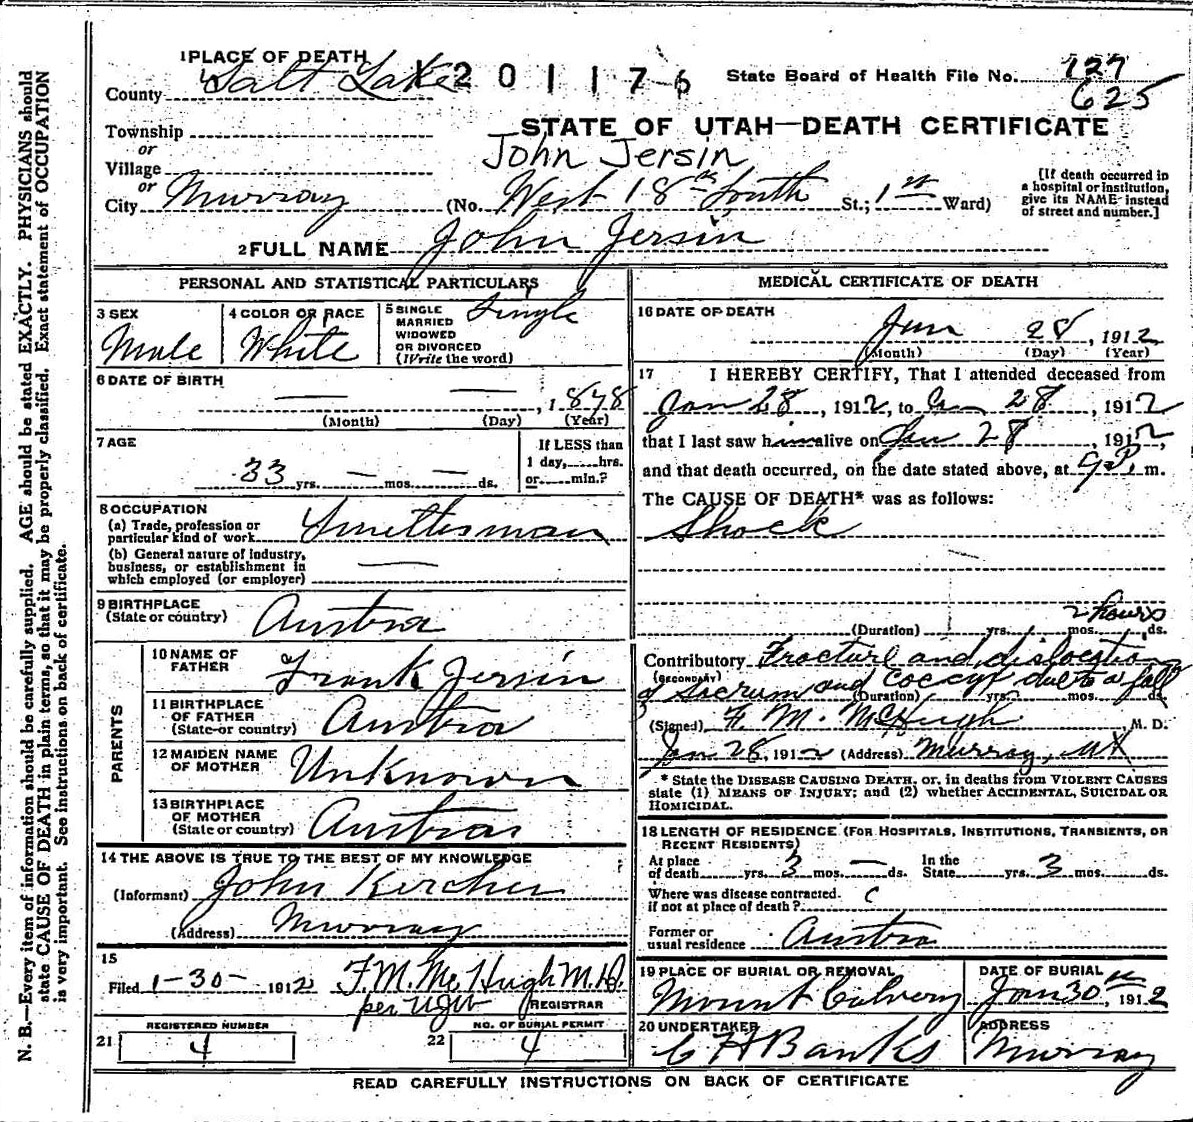 N. B.—Every item of information should be carefully supplied. AGE should be stated EXACTLY. PHYSICIANS should
state CAUSE OF DEATH in plain terms, so that it may be properly classified. Exact statement of OCCUPATION
is very important. See instructions on back of certificate.
1 PLACE OF DEATH
County Salt Lake
1201176
State Board of Health File No. 127
625
Township
or
STATE OF UTAH—DEATH CERTIFICATE
John Jersin
Village
or
City Murray (No. West 18th South St.; 1st Ward)
[If death occurred in
a hospital or institution,
give its NAME instead
of street and number.]
2 FULL NAME John Jersin
PERSONAL AND STATISTICAL PARTICULARS
3 SEX
Male
4 COLOR OR RACE
White
5 SINGLE
MARRIED
WIDOWED
OR DIVORCED
(Write the word)
Single
6 DATE OF BIRTH
— — , 1878
(Month) (Day) (Year)
7 AGE
33 yrs. — mos. — ds.
If LESS than
1 day, hrs.
or min.?
8 OCCUPATION
(a) Trade, profession or
particular kind of work Smelterman
(b) General nature of industry,
business, or establishment in
which employed (or employer) —
9 BIRTHPLACE
(State or country) Austra
PARENTS
10 NAME OF
FATHER Frank Jersin
11 BIRTHPLACE
OF FATHER
(State or country) Austra
12 MAIDEN NAME
OF MOTHER Unknown
13 BIRTHPLACE
OF MOTHER
(State or country) Austra
14 THE ABOVE IS TRUE TO THE BEST OF MY KNOWLEDGE
(Informant) John Kircher
(Address) Murray
15
Filed 1-30- 1912 F. M. McHugh M.D.
per
REGISTRAR
REGISTERED NUMBER
21 4
NO. OF BURIAL PERMIT
22 4
MEDICAL CERTIFICATE OF DEATH
16 DATE OF DEATH
Jan 28, 1912
(Month) (Day) (Year)
17 I HEREBY CERTIFY, That I attended deceased from
Jan 28, 1912, to Jan 28, 1912
that I last saw him alive on Jan 28, 1912,
and that death occurred, on the date stated above, at 9 P. m.
The CAUSE OF DEATH* was as follows:
Shock
2 hours
(Duration) yrs. mos. ds.
Contributory Fracture and dislocation
(SECONDARY)
of Sacrum and Coccyx due to a fall
(Duration) yrs. mos. ds.
(Signed) F. M. McHugh M. D.
Jan 28, 1912 (Address) Murray, Ut
* State the DISEASE CAUSING DEATH, or, in deaths from VIOLENT CAUSES
state (1) MEANS OF INJURY; and (2) whether ACCIDENTAL, SUICIDAL OR
HOMICIDAL.
18 LENGTH OF RESIDENCE (FOR HOSPITALS, INSTITUTIONS, TRANSIENTS, OR
RECENT RESIDENTS)
At place
of death yrs. 3 mos. — ds.
In the
State yrs. 3 mos. ds.
Where was disease contracted.
if not at place of death?
Former or
usual residence Austra
19 PLACE OF BURIAL OR REMOVAL
Mount Calvery
DATE OF BURIAL
Jan 30th, 1912
20 UNDERTAKER
C H Banks
ADDRESS
Murray
READ CAREFULLY INSTRUCTIONS ON BACK OF CERTIFICATE